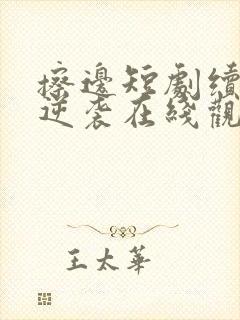 擦邊短劇續
逆襲在綫觀
王太華